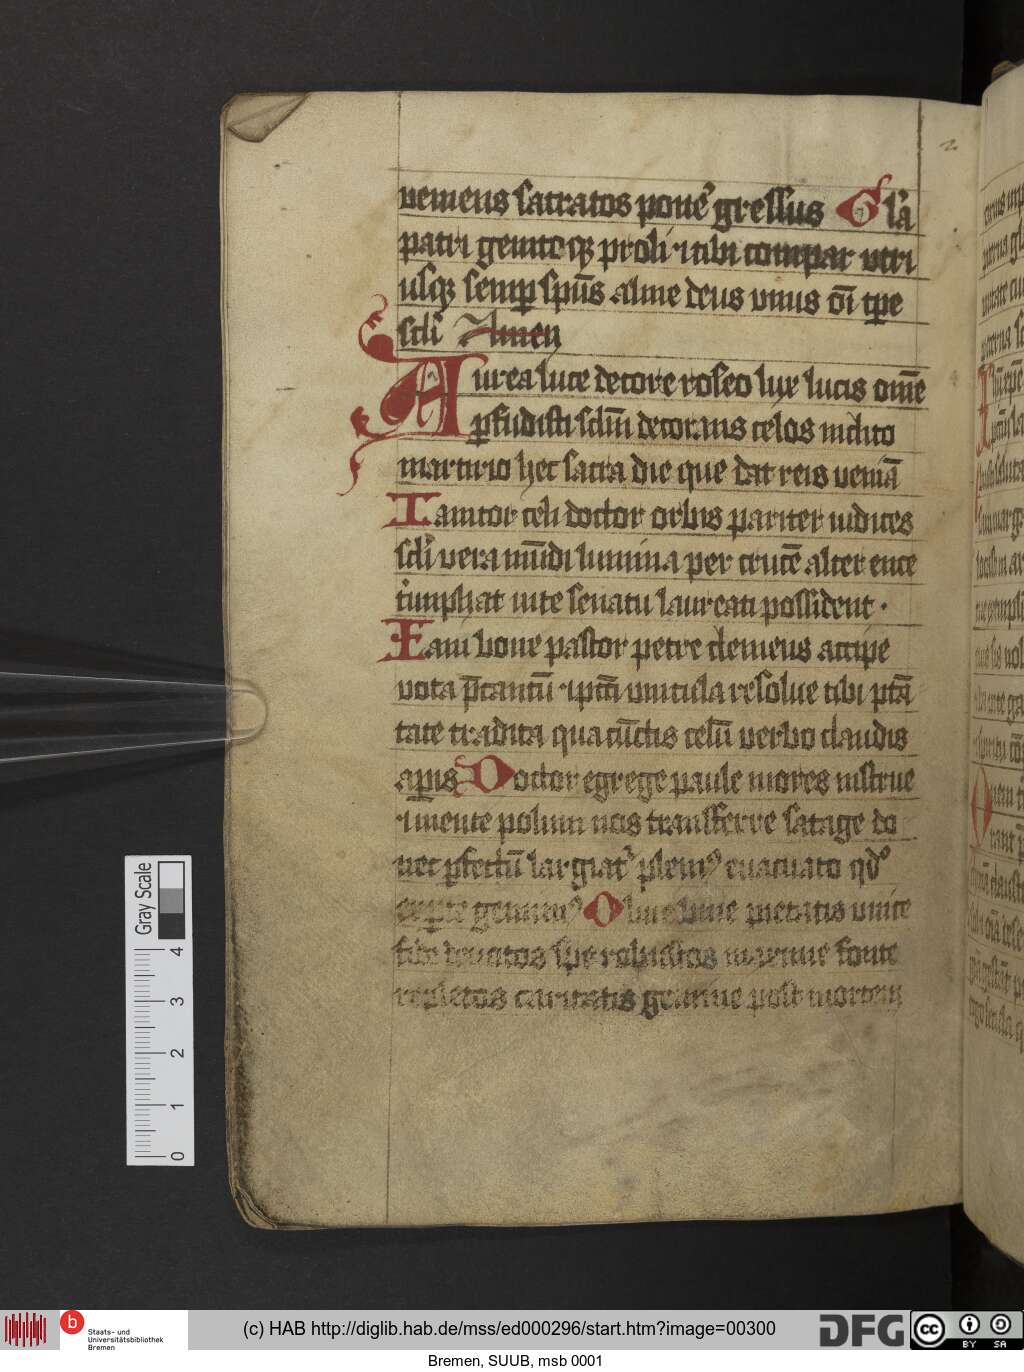 veniens sacratos poneˀ gressus Gl'a
patri genito qꝫ proli ⁊ tibi compar vtri
usqꝫ semꝑ spūs alme deus vnus oī tꝑe
scl'i Amen
Aurea luce decore roseo lux lucis ōme
ꝑfudisti sclm̄ decorans celos inclito
martirio hec sacra die que dat reis veniā
Ianitor celi doctor orbis pariter iudices
scl'i vera mūdi lumina per crucē alter ence
tͥunphat vite senatu laureati possident ·
Iam bone pastor petre clemens accipe
vota p̄cantū ⁊ pctī vincula resolue tibi ptā
tate tradita qua cūctis celū verbo claudis
aꝑis Doctor egrege paule mores instrue
⁊ mente polum nos transferre satage do
nec ꝑfectū largiatˀ plenꝰ euacuato qd'
gerimꝰ Oliue bine pietatis vnice
fide deuotos spe robustos maxime fonte
repletos caritatis gemine post mortem
Gray Scale
4
3
2
1
0
b Staats- und
Universitätsbibliothek
Bremen
(c) HAB http://diglib.hab.de/mss/ed000296/start.htm?image=00300
DFG
cc BY SA
Bremen, SUUB, msb 0001